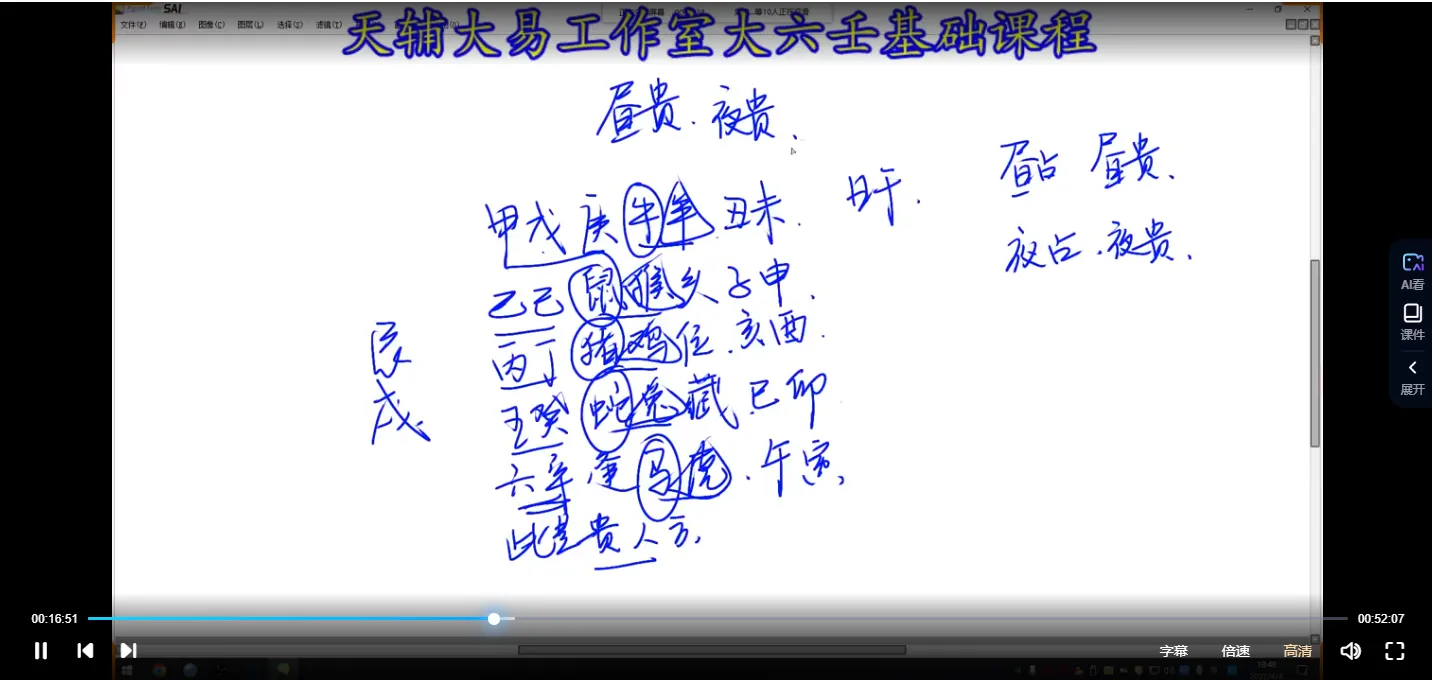 SAI
文件(F) 编辑(E) 图像(C) 图层(L) 选择(S) 滤镜(T)
天辅大易工作室大六壬基础课程
昼贵.夜贵.
昼占 昼贵.
夜占.夜贵.
甲戊庚牛羊 丑未. 日干.
乙己鼠猴乡 子申.
丙丁猪鸡位.亥酉.
壬癸蛇兔藏.巳卯
六辛逢马虎.午寅.
此是贵人方.
辰
戌
AI看
课件
展开
00:16:51
00:52:07
字幕 倍速 高清